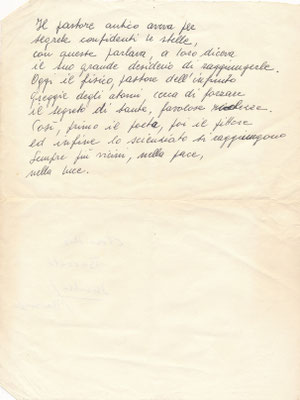 Il pastore antico aveva per
segrete confidenti le stelle,
con queste parlava, a loro diceva
il suo grande desiderio di raggiungerle.
Oggi il fisico, pastore dell'infinito
gregge degli atomi cerca di forzare
il segreto di tante, favolose
Così, primo il poeta, poi il filosofo
ed infine lo scienziato si raggiungono
sempre più vicini, nella pace,
nella luce.